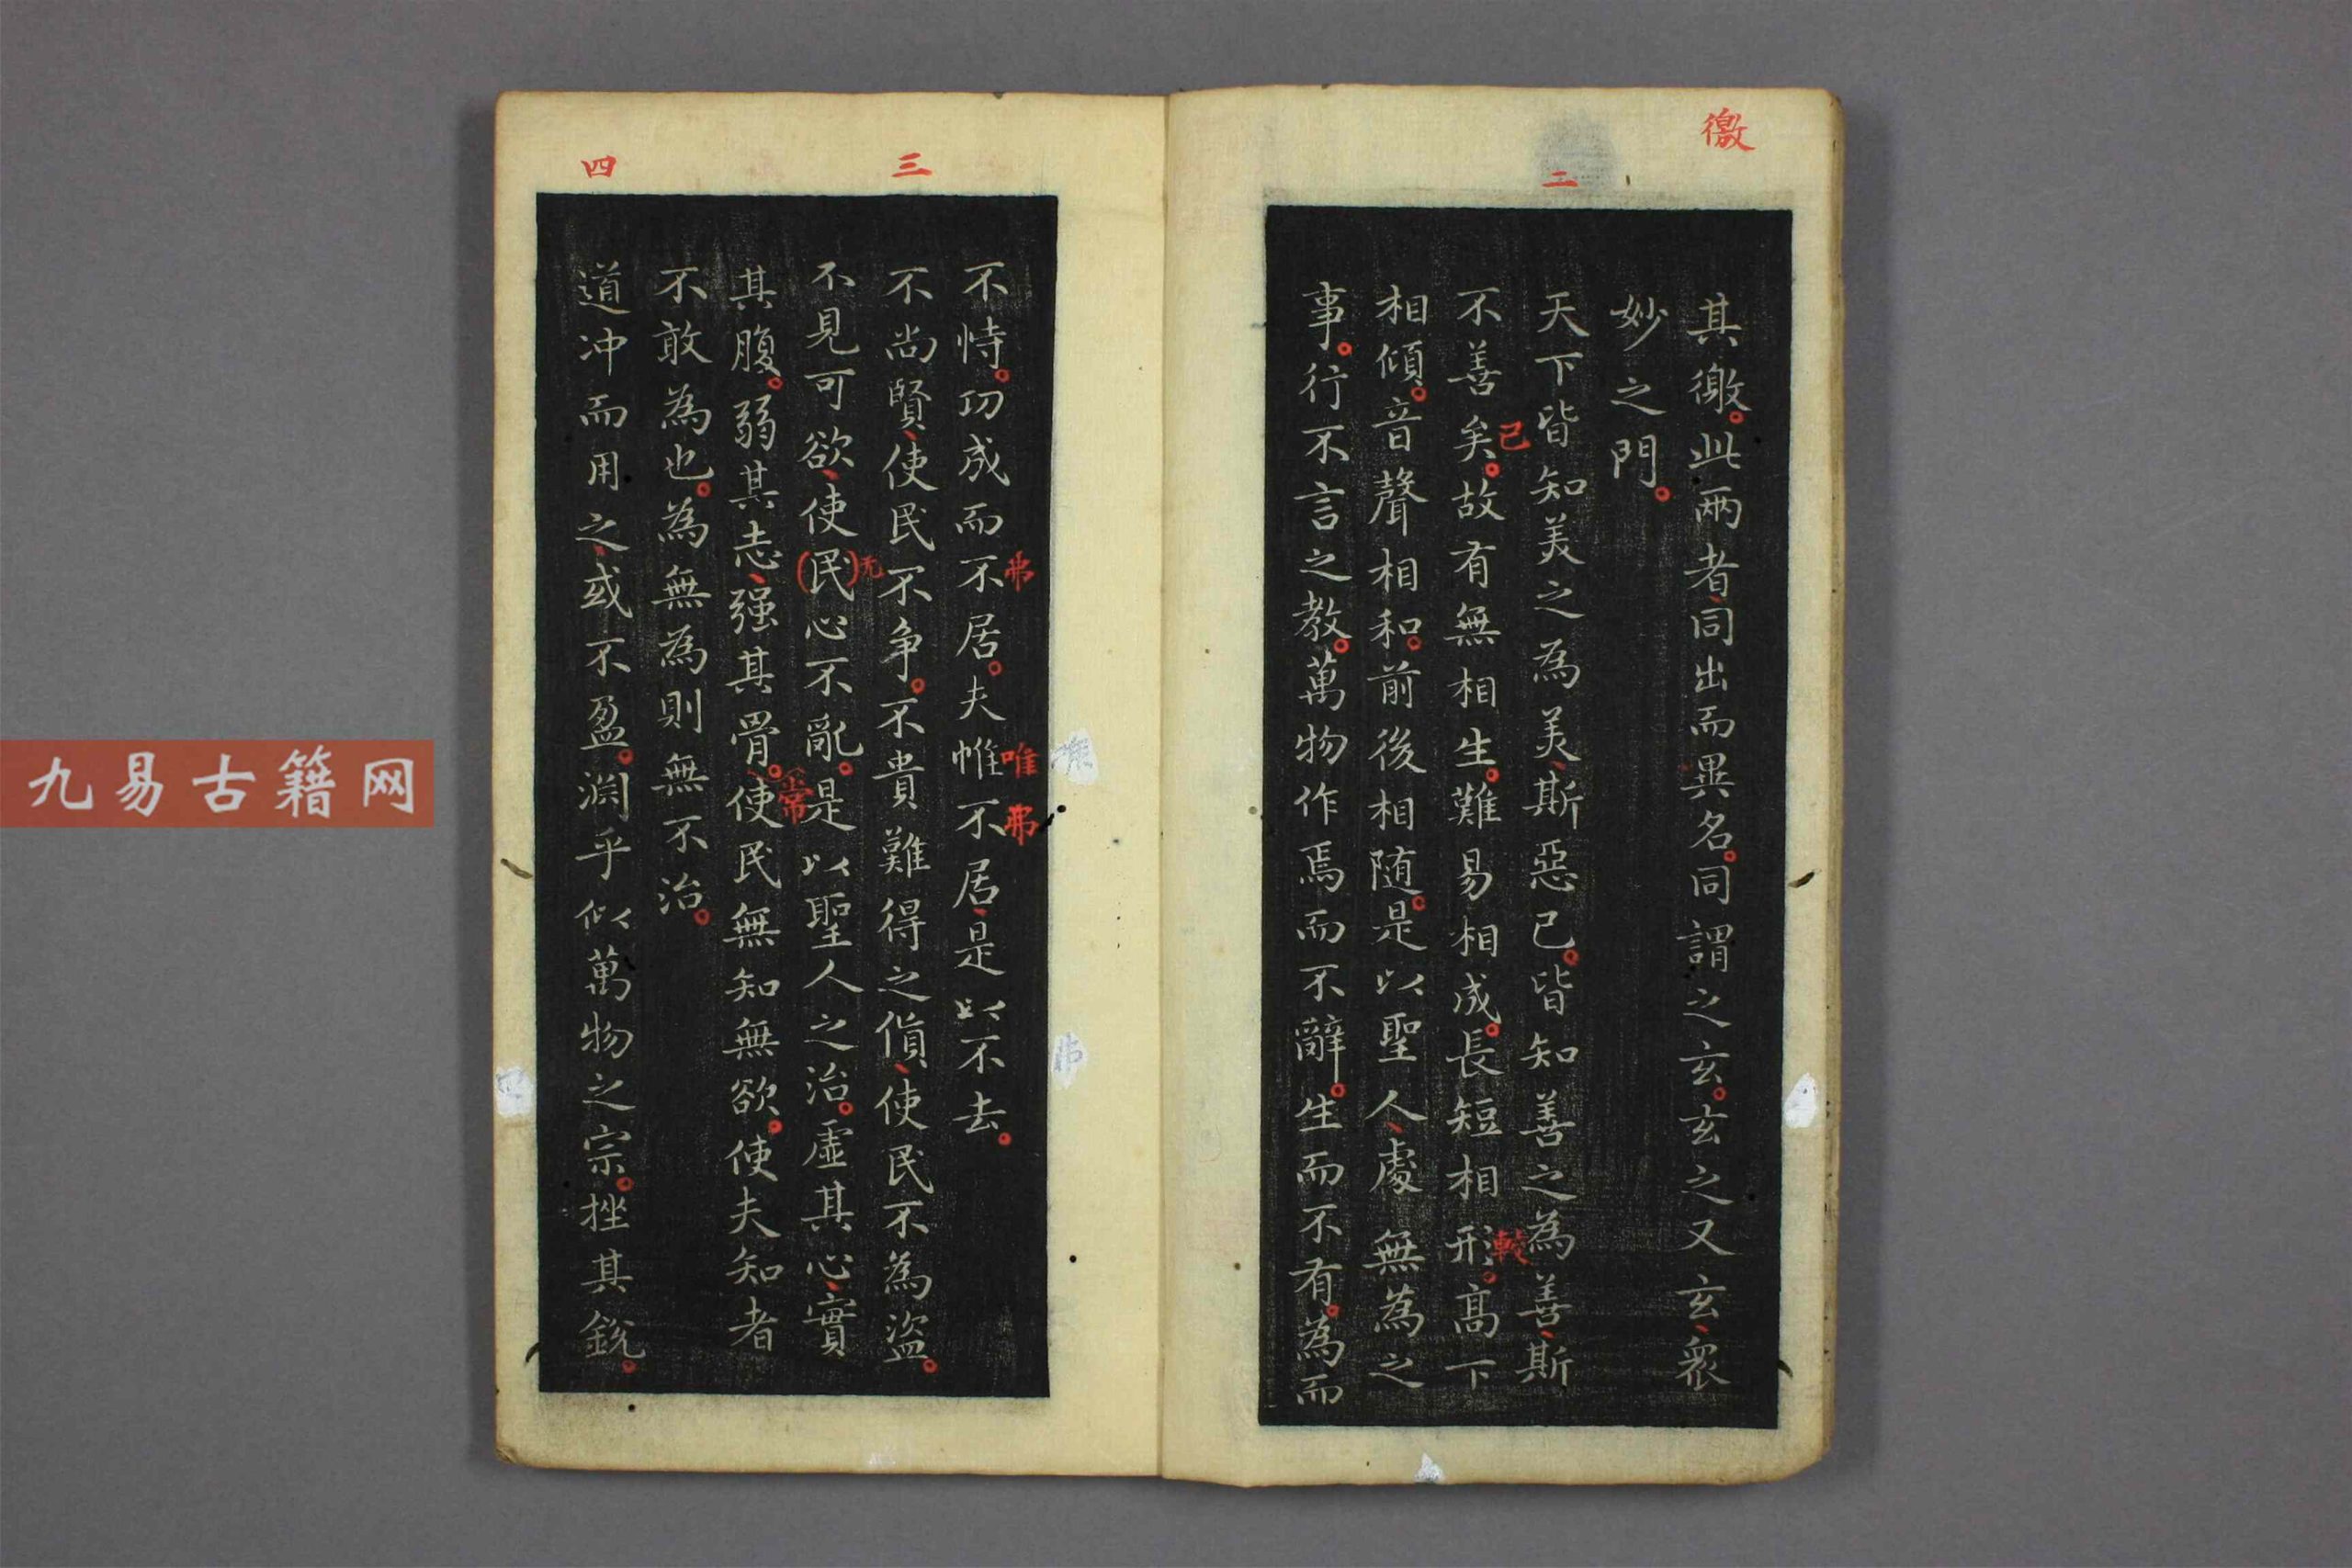 徼
二
其徼。此兩者、同出而異名。同謂之玄。玄之又玄、衆
妙之門。
天下皆知美之為美、斯惡已。皆知善之為善、斯
不善矣。故有無相生。難易相成。長短相形。高下
已
較
相傾。音聲相和。前後相随。是以聖人、處無為之
事。行不言之教。萬物作焉而不辭。生而不有。為而
三
四
不恃。功成而不居。夫惟不居、是以不去。
弗
唯
弗
不尚賢、使民不争。不貴難得之貨、使民不為盜。
不見可欲、使(民)心不亂。是以聖人之治。虛其心、實
无
其腹。弱其志、强其骨。使民無知無欲。使夫知者
常
不敢為也。為無為則無不治。
道冲而用之、或不盈。淵乎似萬物之宗。挫其銳。
九易古籍网